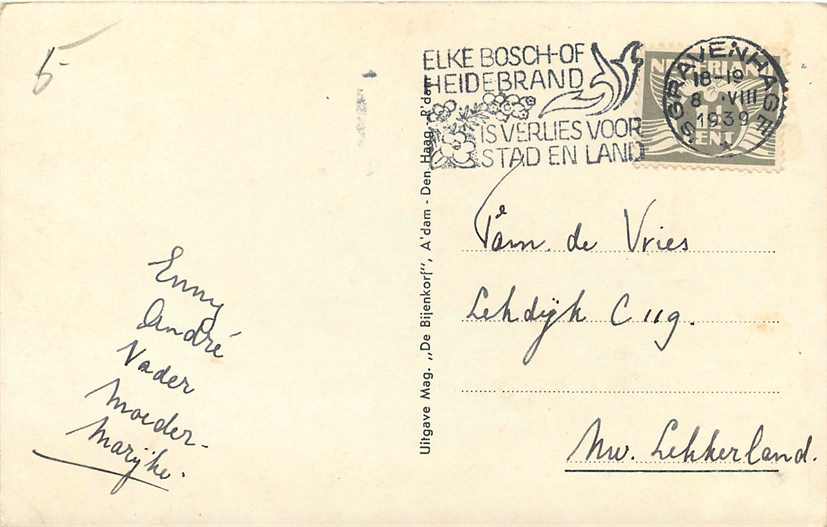 5-
ELKE BOSCH- OF
HEIDEBRAND
IS VERLIES VOOR
STAD EN LAND
'SGRAVENHAGE
18-19
8 VIII
1939
4
NEDERLAND
CENT
Fam. de Vries
Lekdÿk C 119.
Nw. Lekkerland.
Uitgave Mag. „De Bijenkorf", A'dam - Den Haag - R'dam
Enny
André
Vader
Moeder-
Marÿke.